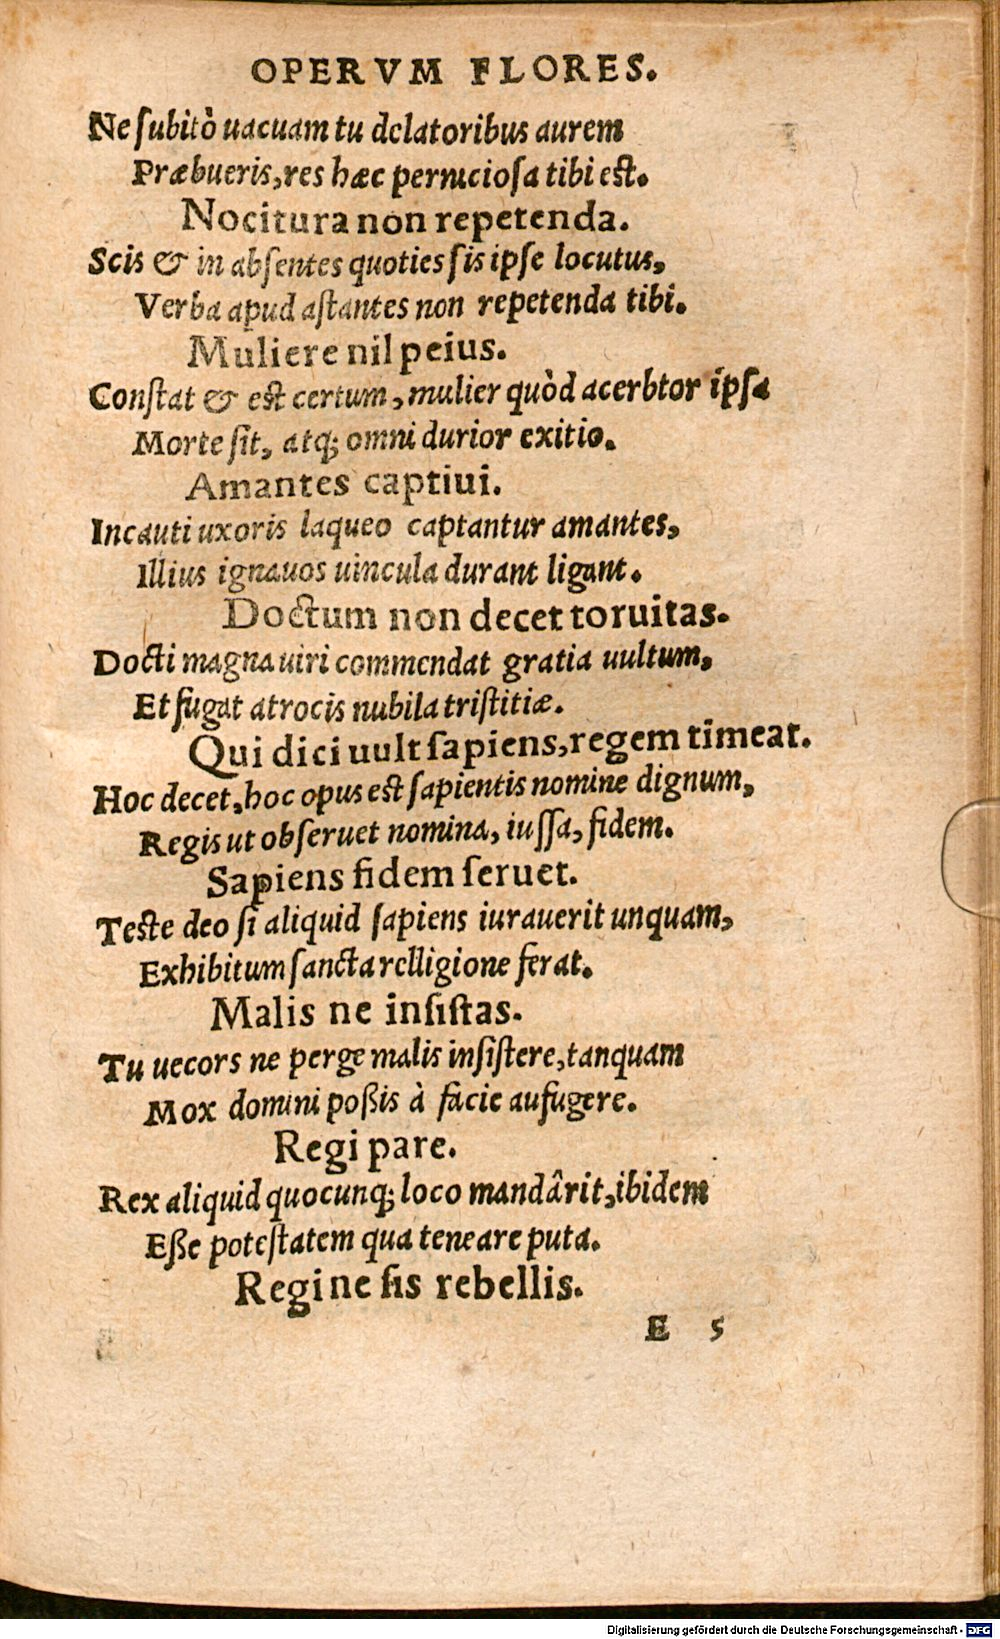 OPERVM FLORES.
Ne ſubitò uacuam tu delatoribus aurem
Præbueris, res hæc pernicioſa tibi est.
Nocitura non repetenda.
Scis & in abſentes quoties ſis ipſe locutus,
Verba apud aſtantes non repetenda tibi.
Muliere nil peius.
Conſtat & est certum, mulier quòd acerbtor ipſa
Morte ſit, atq; omni durior exitio.
Amantes captiui.
Incauti uxoris laqueo captantur amantes,
Illius ignauos uincula durant ligant.
Doctum non decet toruitas.
Docti magna uiri commendat gratia uultum,
Et fugat atrocis nubila triſtitiæ.
Qui dici uult ſapiens, regem timeat.
Hoc decet, hoc opus est ſapientis nomine dignum,
Regis ut obſeruet nomina, iuſſa, fidem.
Sapiens fidem ſeruet.
Teste deo ſi aliquid ſapiens iurauerit unquam,
Exhibitum ſancta relligione ferat.
Malis ne inſiſtas.
Tu uecors ne perge malis inſiſtere, tanquam
Mox domini poßis à facie aufugere.
Regi pare.
Rex aliquid quocunq; loco mandârit, ibidem
Eße poteſtatem qua teneare puta.
Regi ne ſis rebellis.
E 5
Digitalisierung gefördert durch die Deutsche Forschungsgemeinschaft - DFG